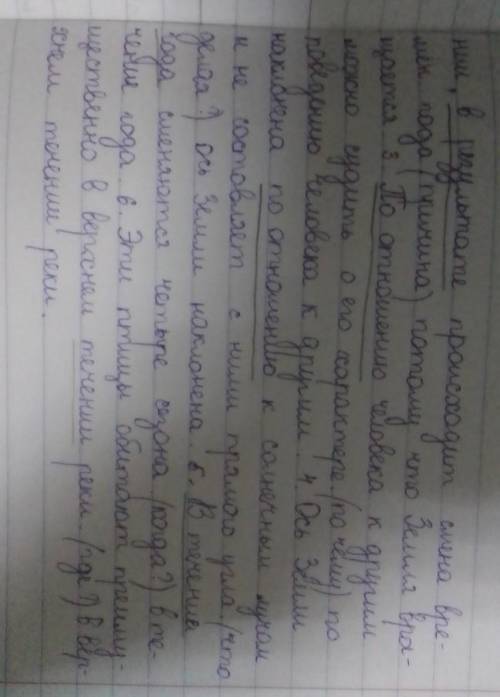 нии, в результате происходит смена вре-
мён года (причина) потому что Земля вра-
щается 3. По отношению человека к другим
можно судить о его характере (по чему) по
поведению человека к другим. 4 Ось Земли
наклонена по отношению к солнечным лучам
и не составляет с ними прямого угла (что
делая?) ось Земли наклонена. 5. В течении
года сменяются четыре сезона (когда?) в те-
чение года 6. Эти птицы обитают преиму-
щественно в верхнем течении реки. (где?) В вер-
хнем течении реки.